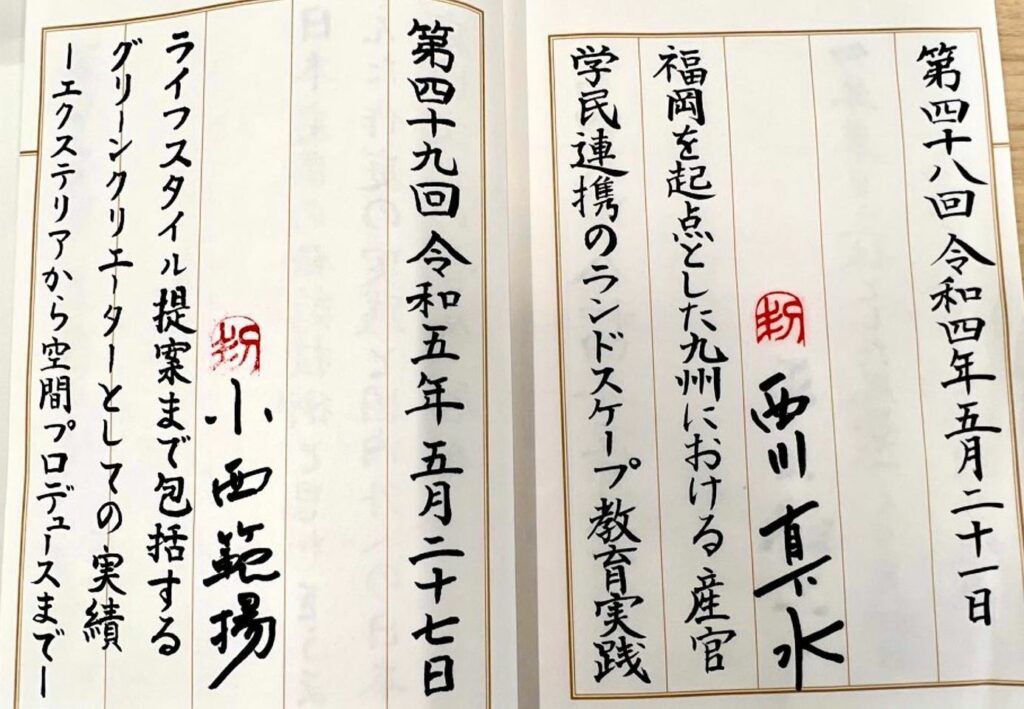 第四十八回 令和四年五月二十一日
西川真水
福岡を起点とした九州における産官
学民連携のランドスケープ教育実践
第四十九回 令和五年五月二十七日
小西範揚
ライフスタイル提案まで包括する
グリーンクリエーターとしての実績
ーエクステリアから空間プロデュースまでー